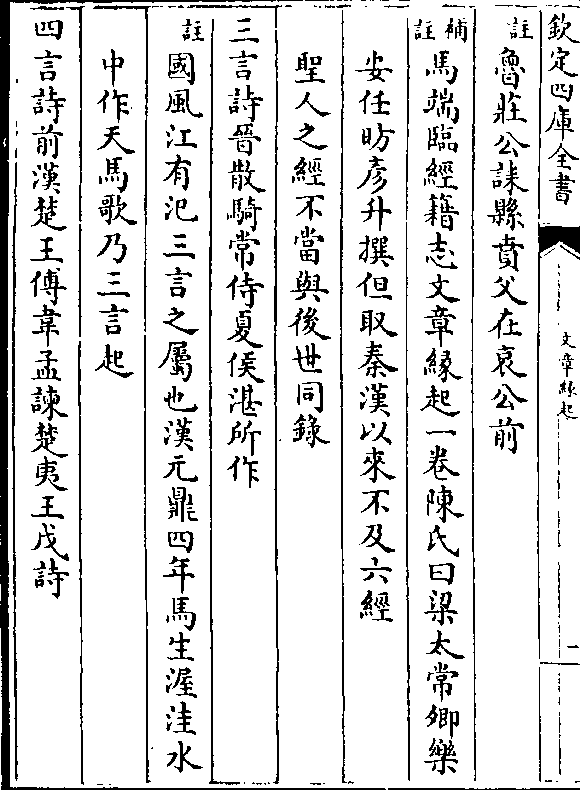 欽定四庫全書
文章緣起
一
註魯莊公誄縣賁父在哀公前
補註馬端臨經籍志文章緣起一卷陳氏曰梁太常卿樂
安任昉彥升撰但取秦漢以來不及六經
聖人之經不當與後世同錄
三言詩晉散騎常侍夏侯湛所作
註國風江有汜三言之屬也漢元鼎四年馬生渥洼水
中作天馬歌乃三言起
四言詩前漢楚王傅韋孟諫楚夷王戊詩